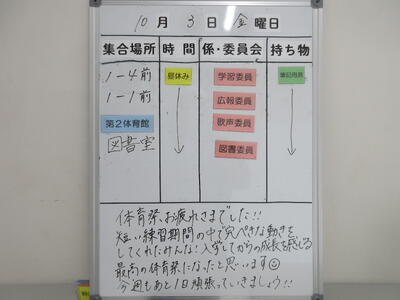 10月 3日 金曜日
集合場所 時間 係・委員会 持ち物
1-4前 昼休み 学習委員 筆記用具
1-1前 広報委員
第2体育館 歌声委員
図書室 図書委員
体育祭、お疲れさまでした!!
短い練習期間の中で完ぺきな動きを
してくれたみんな!入学してからの成長を感じる
最高の体育祭になったと思います☺
今週もあと1日頑張っていきましょう!!